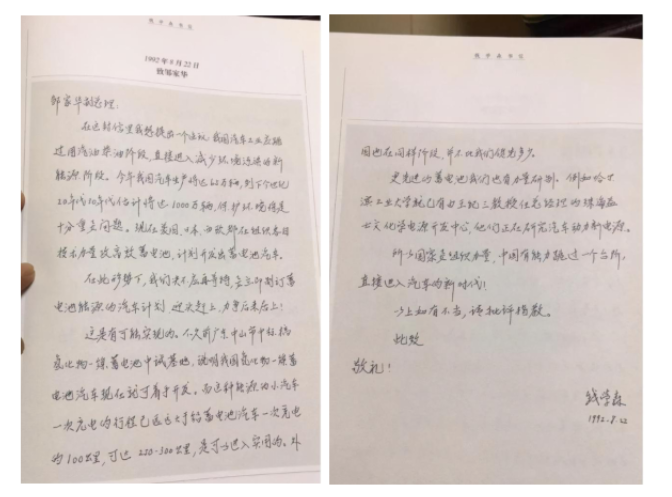 钱学森书信
1992年8月22日
致邹家华
邹家华副总理:
在这封信里我想提出一个建议:我国汽车工业应跳
过用汽油柴油阶段,直接进入减少环境污染的新
能源阶段。今年我国汽车生产将达62万辆,到下个世纪
20年代10年代估计将达1000万辆,保护环境将是
十分重大问题。现在美国、日本、西欧都在组织各自
技术力量攻高效蓄电池,计划开发出蓄电池汽车。
在此形势下,我们决不应再等待,应立即制订蓄
电池能源的汽车计划,迎头赶上,力争后来居上!
这是有可能实现的。不久前广东中山市中
氢化物-镍蓄电池中试基地,说明我国氢化物-镍蓄
电池汽车现在就可着手开发。而这种能源的小汽车
一次充电的行程已远远大于铅蓄电池汽车一次充电
的100公里,可达 220-300公里,是可以进入实用的。外
钱学森书信
国也在同样阶段,并不比我们领先多少。
更先进的蓄电池我们也有力量研制。例如哈尔
滨工业大学就已有由王纪三教授任总经理的珠海益
士文化学电源开发中心,他们正在研究汽车动力新电源。
所以国家应组织力量,中国有能力跳过一个台阶,
直接进入汽车的新时代!
以上如有不当,请批评指教。
此致
敬礼!
钱学森
1992.8.22